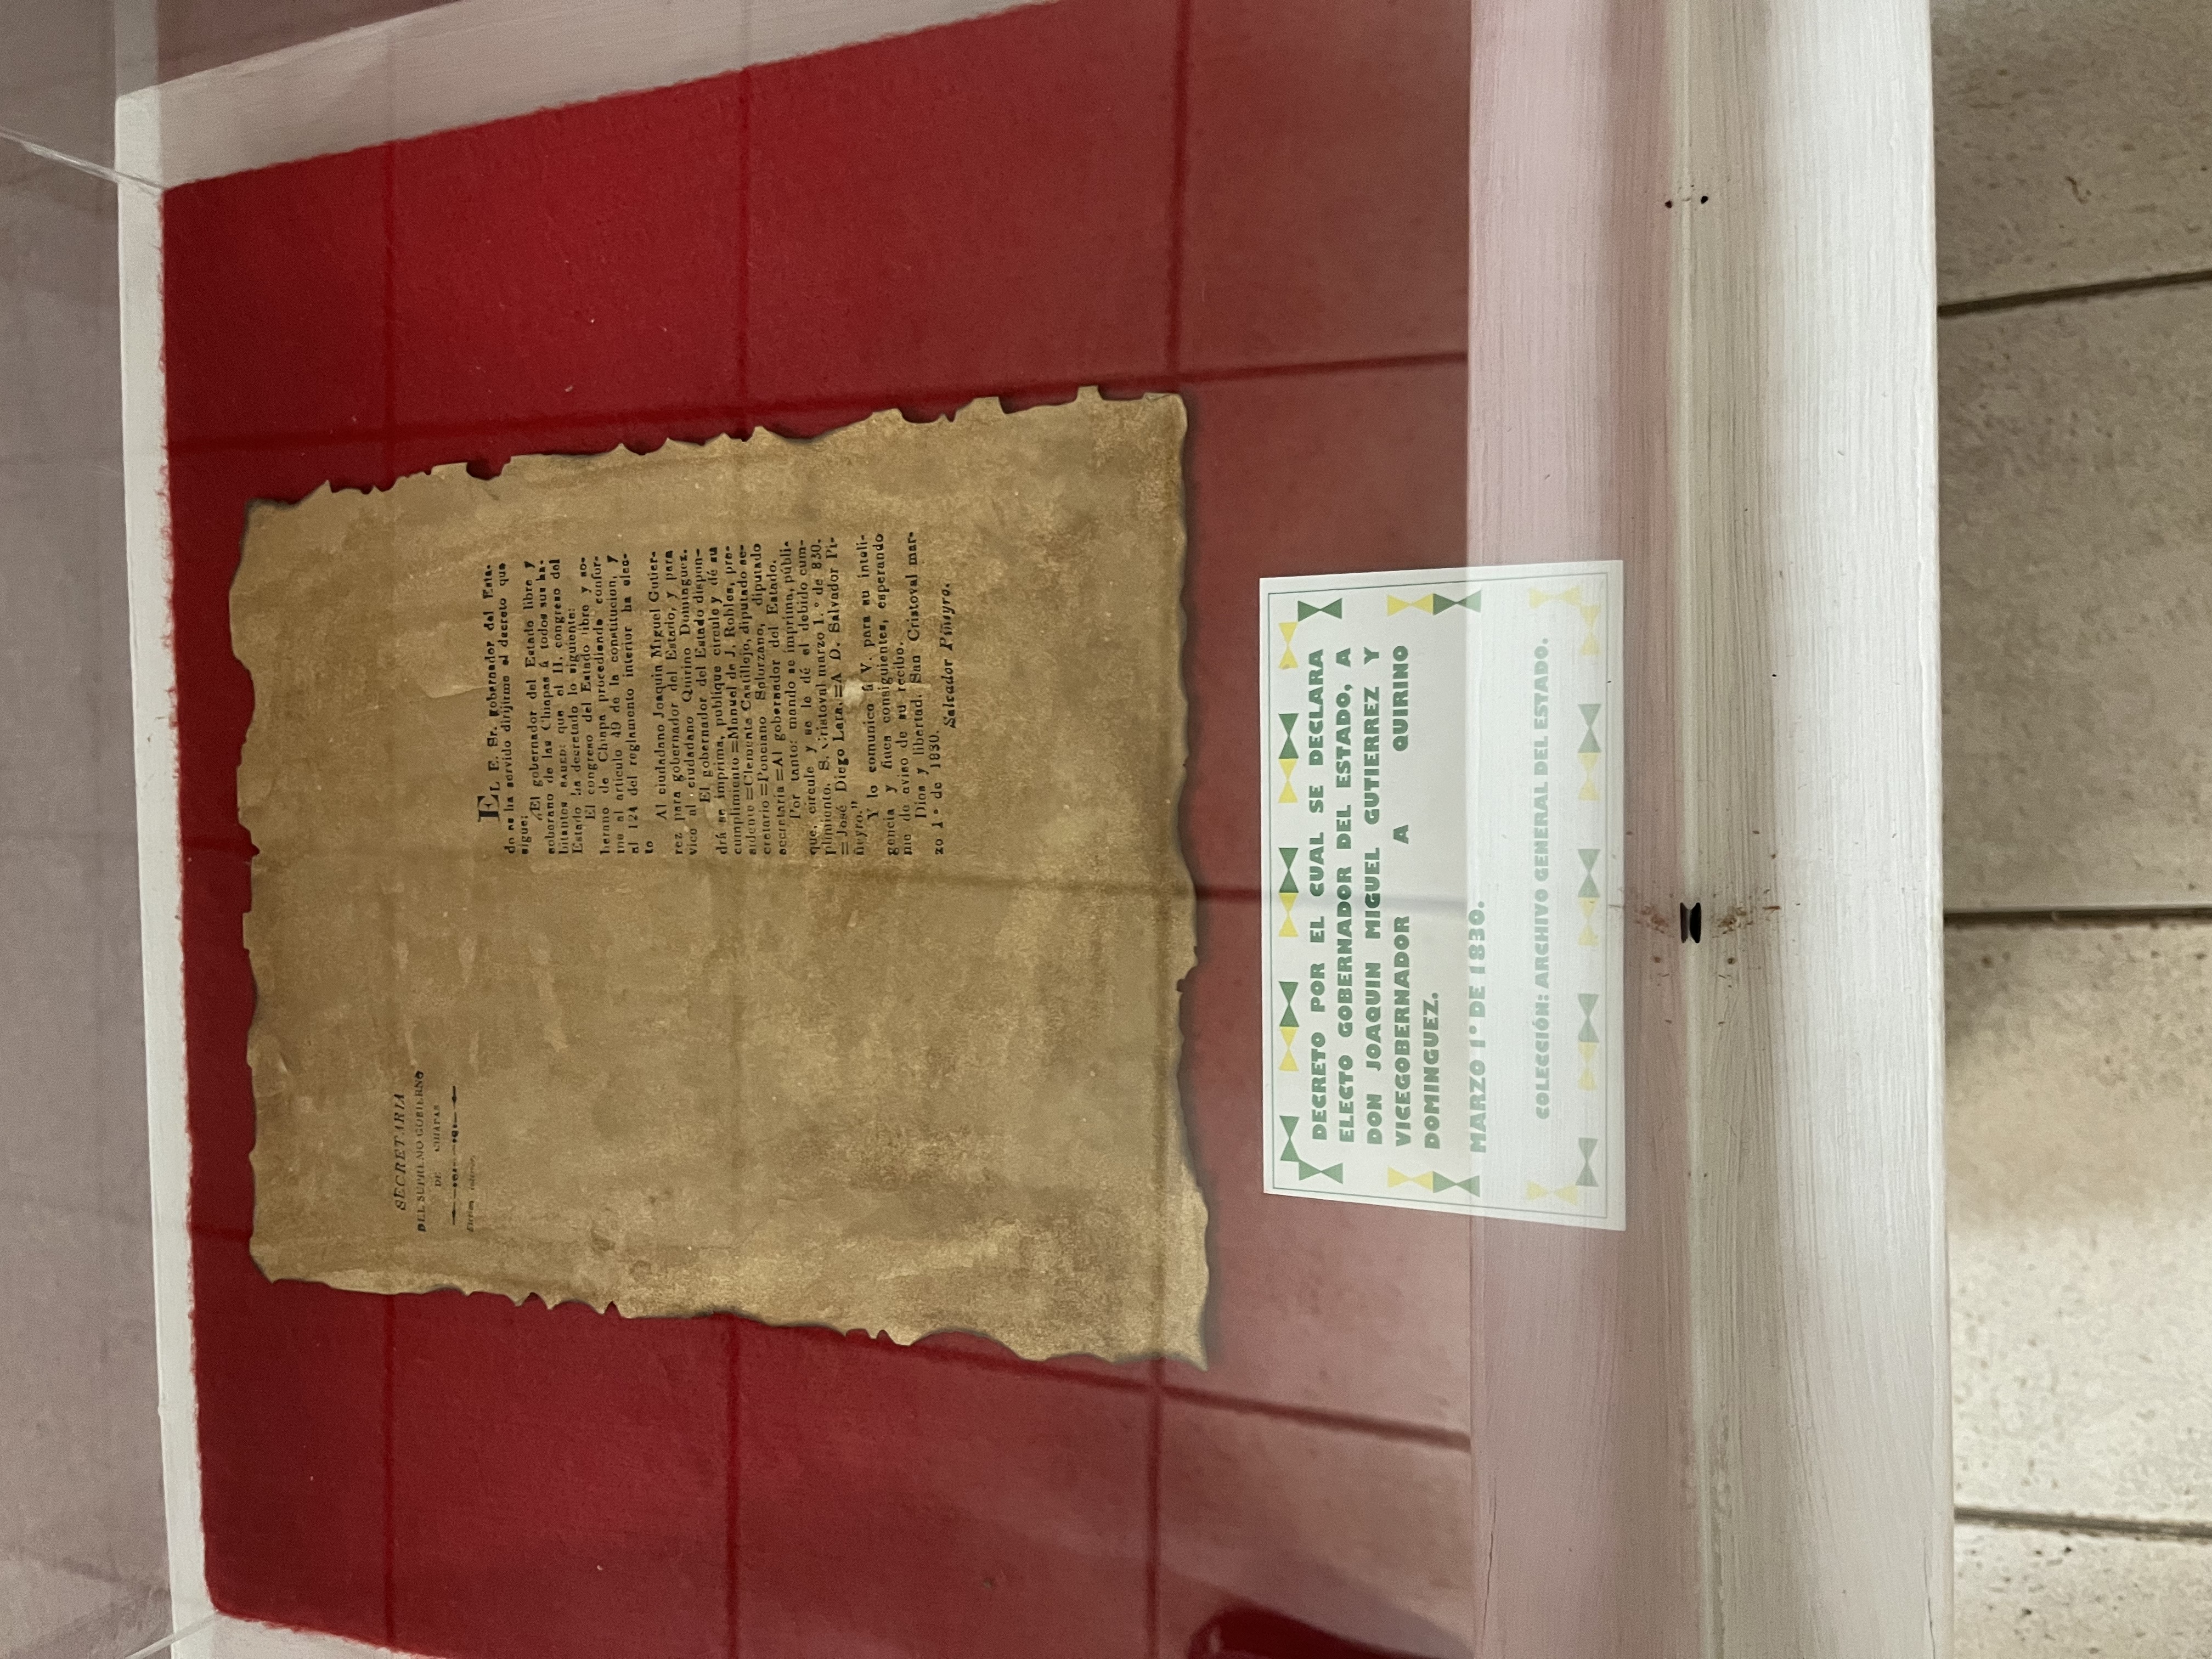 SECRETARIA
DEL SUPREMO GOBIERNO
DE CHIAPAS
EL E. Sr. gobernador del Esta-
do se ha servido dirijirme el decreto que
sigue:
"El gobernador del Estado libre y
soberano de las Chiapas á todos sus ha-
bitantes SABED: que el II. congreso del
Estado ha decretado lo siguiente:
El congreso del Estado libre y so-
berano de Chiapa procediendo confor-
me al artículo 49 de la constitucion, y
al 124 del reglamento interior ha elec-
to
Al ciudadano Joaquin Miguel Gutier-
rez para gobernador del Estado, y para
vice al ciudadano Quirino Dominguez.
El gobernador del Estado dispon-
drá se imprima, publique circule y dé su
cumplimiento.=Manuel de J. Robles, pre-
sidente=Clemente Castillejo, diputado se-
cretario=Ponciano Solorzano, diputado
secretaria=Al gobernador del Estado.
Por tanto: mando se imprima, públi-
que, circule y se le dé el debido cum-
plimiento. S. Cristoval marzo 1.º de 830.
=José Diego Lara.=A D. Salvador Pi-
ñeyro."
Y lo comunico á V. para su inteli-
gencia y fines consiguientes, esperando
me de aviso de su recibo.
Dios y libertad. San Cristoval mar-
zo 1º de 1830.
Salvador Piñeyro.
DECRETO POR EL CUAL SE DECLARA
ELECTO GOBERNADOR DEL ESTADO, A
DON JOAQUIN MIGUEL GUTIERREZ Y
VICEGOBERNADOR A QUIRINO
DOMINGUEZ.
MARZO 1° DE 1830.
COLECCIÓN: ARCHIVO GENERAL DEL ESTADO.